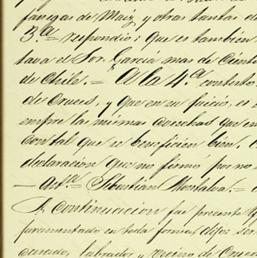 fanegas de Maiz, y otras tantas de
3.ª respondió: que es tambien
tava el Sor. Garcia mas de Ciento
de Chile. = A la 4.ª contestó
de Cruces, y que en su juicio, es
empre las mismas cosechas que en
con tal que se beneficien bien.
declaracion que no firmo por no
Sebastian
A Continuacion fue presente
juramentado en toda forma, dijo ser
cuando, labrador y vecino de Cruces